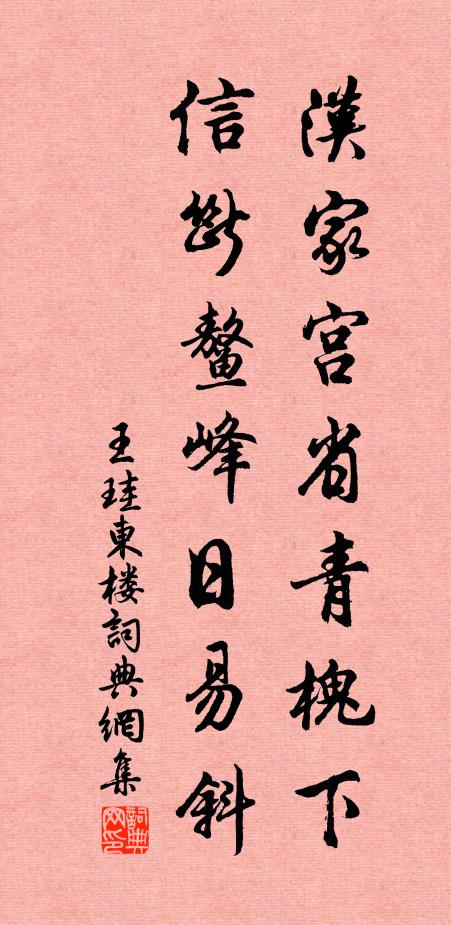 漢家宮省青槐下
信断鼇峰日易斜
王珪東楼詞典網集
詞典网印